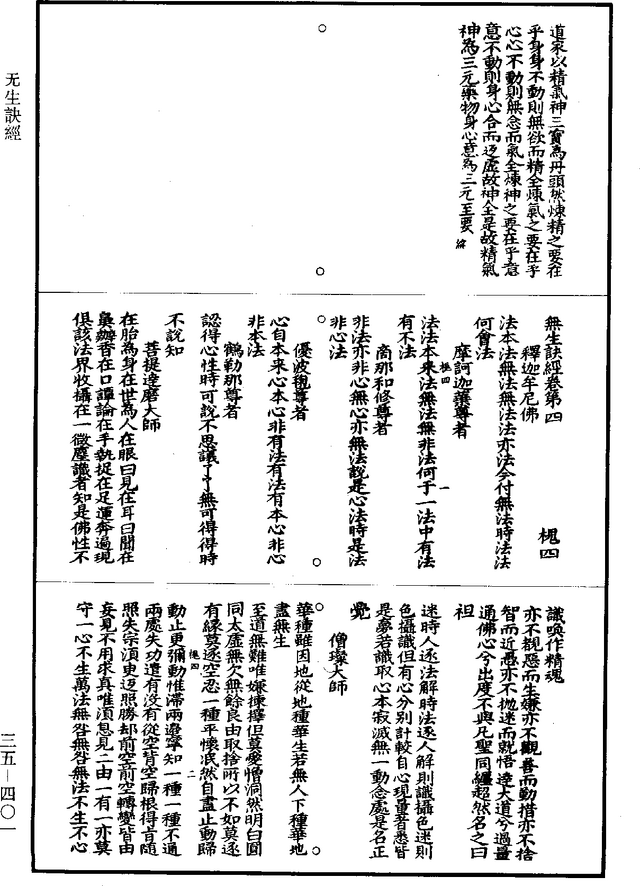 道家以精氣神三寶為丹頭然煉精之要在
乎身身不動則無欲而精全煉氣之要在乎
心心不動則無念而氣全煉神之要在乎意
意不動則身心合而返虛故神全是故精氣
神為三元藥物身心意為三元至要
無生訣經卷第四
槐四
釋迦牟尼佛
法本法無法無法法亦法今付無法時法法
何曾法
摩訶迦葉尊者
法法本來法無法無非法何于一法中有法
有不法
槐四
一
商那和修尊者
非法亦非心無心亦無法說是心法時是法
非心法
優波毱尊者
心自本來心本心非有法有法有本心非心
非本法
鶴勒那尊者
認得心性時可說不思議了了無可得得時
不說知
菩提達磨大師
在胎為身在世為人在眼曰見在耳曰聞在
鼻辨香在口譚論在手執捉在足運奔遍現
俱該法界收攝在一微塵識者知是佛性不
識喚作精魂
亦不覩惡而生嫌亦不觀善而勤措亦不捨
智而近愚亦不拋迷而就悟達大道兮過量
通佛心兮出度不與凡聖同纏超然名之曰
祖
迷時人逐法解時法逐人解則識攝色迷則
色攝識但有心分別計較自心現量者悉皆
是夢若識取心本寂滅無一動念處是名正
覺
僧璨大師
華種雖因地從地種華生若無人下種華地
盡無生
至道無難唯嫌揀擇但莫愛憎洞然明白圓
同太虛無欠無餘良由取捨所以不如莫逐
有緣莫逐空忍一種平懷泯然自盡止動歸
槐四
二
動止更彌動惟滯兩邊寧知一種一種不通
兩處失功遣有沒有從空背空歸根得旨隨
照失宗須臾返照勝却前空前空轉變皆由
妄見不用求真唯須息見二由一有一亦莫
守一心不生萬法無咎無咎無法不生不心
无生訣經
三五－四〇一